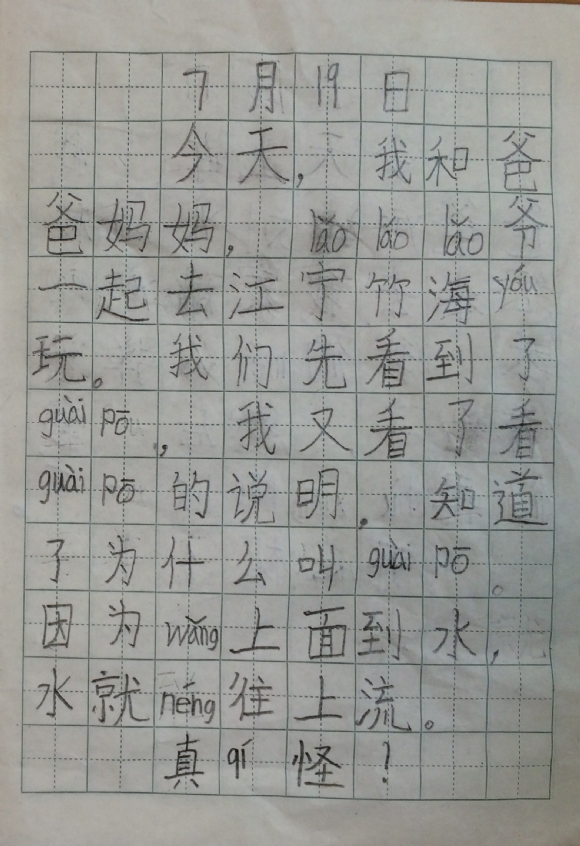 7月19日
今天,我和爸
爸妈妈,lǎo láo lǎo爷
一起去江宁竹海yóu
玩。我们先看到了
guài pō,我又看了看
guài pō的说明。知道
了为什么叫guài pō。
因为wǎng上面到水,
水就néng往上流。
真qí怪!